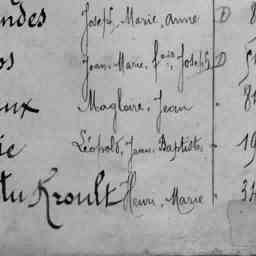 ndes Joseph, Marie, Anne D 8
os Jean-Marie, fois, Joseph D
ux Magloire, Jean 8
ie Léopold, Jean-Baptiste 19
tu Kroult Henri, Marie 34